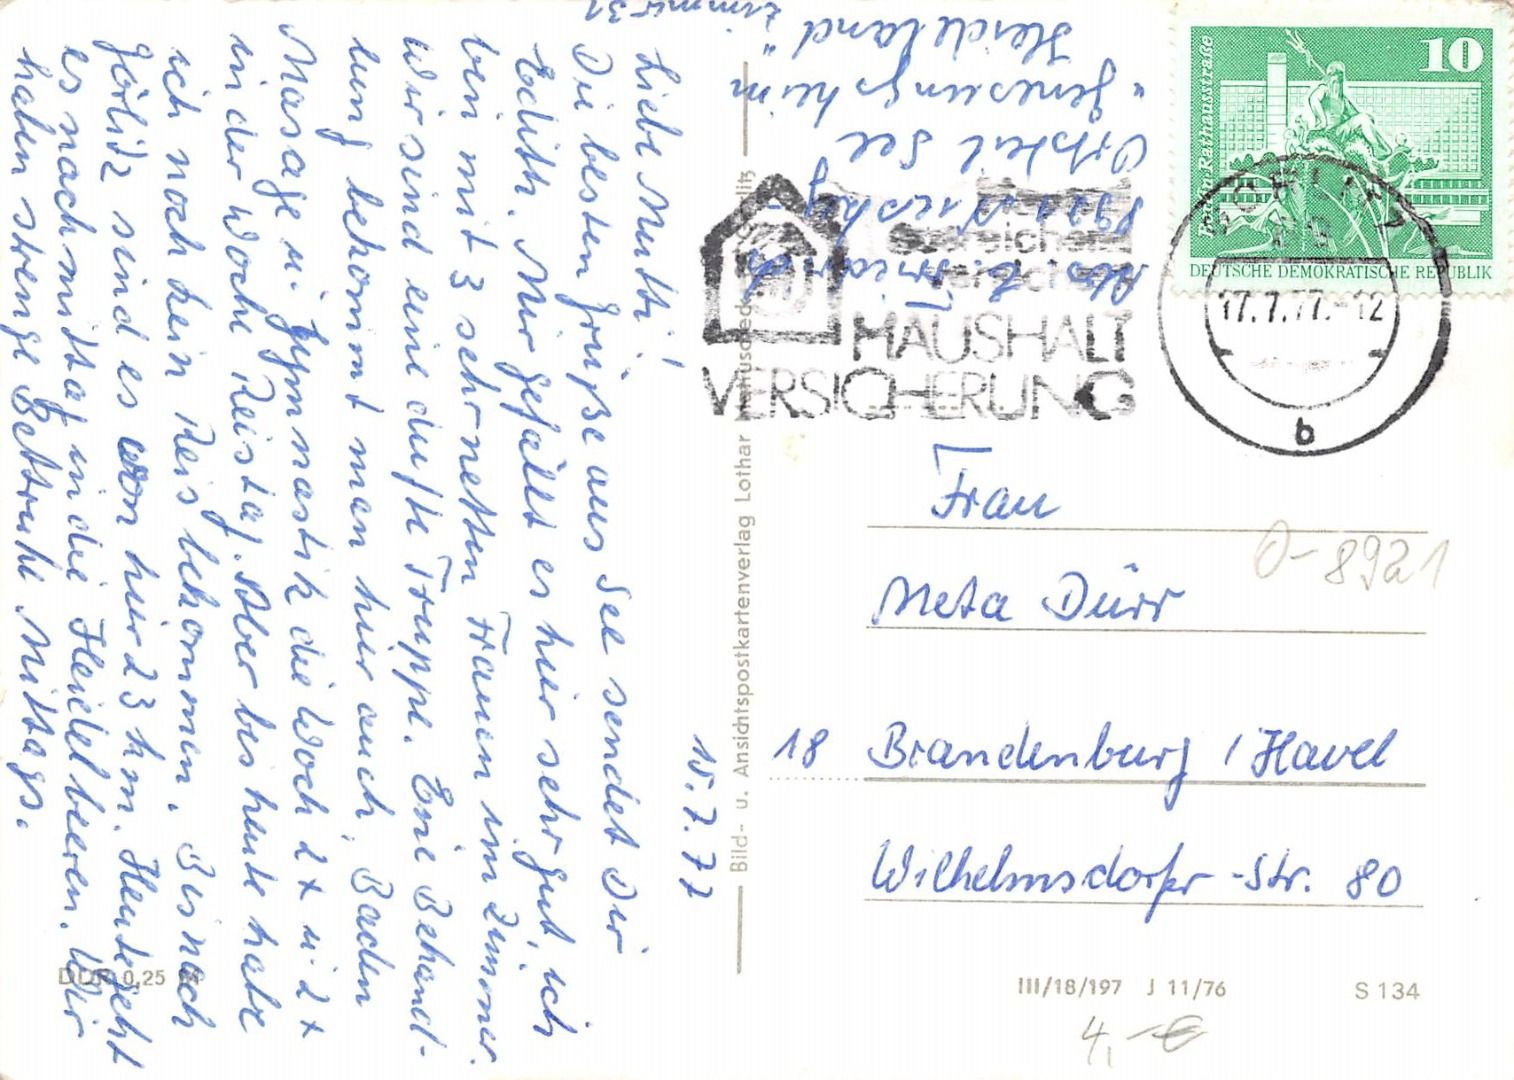 15.7.77
Liebe Mutti!
Die besten Grüße aus See sendet Dir
Edith. Mir gefällt es hier sehr gut, ich
bin mit 3 sehr netten Frauen im Zimmer.
Wir sind eine dufte Truppe. Eine Behand-
lung bekommt man hier auch, Baden
Masage u. Gymnastik die Woch 2x u. 2x
in der Woche Reistag. Aber bis heute habe
ich noch kein Reis bekommen. Bis nach
Görlitz sind es von hier 23 km. Heute geht
es nachmittag in die Heidelbeeren. Wir
haben strenge Bettruhe Mittags.
Abs. E. Friedrich
Ortsteil See
"Genesungsheim
Heideland"
Zimmer 31
10
Berlin, Rathausstraße
DEUTSCHE DEMOKRATISCHE REPUBLIK
GÖRLITZ
17.7.77.-12
b
HAUSHALT
VERSICHERUNG
Frau
Meta Dürr
O-8921
18 Brandenburg / Havel
Wilhelmsdorfer-Str. 80
Bild- u. Ansichtspostkartenverlag Lothar
DDR 0,25 M
III/18/197 J 11/76
S 134
4,-€